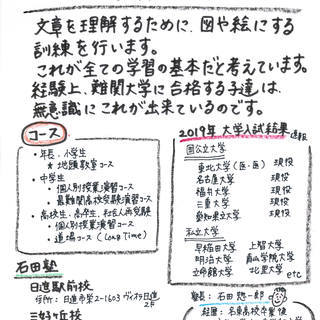 文章を理解するために、図や絵にする
訓練を行います。
これが全ての学習の基本だと考えています。
経験上、難関大学に合格する子達は、
無意識にこれが出来ているのです。
コース
・年長、小学生
★地頭教室コース
・中学生
・個人別授業演習コース
・最難関高校受験演習コース
・高校生、高卒生、社会人再受験
・個人別授業演習コース
・道場コース (Long Time)
2019年 大学入試結果 速報
国公立大学
東北大学(医・医) 現役
名古屋大学 現役
福井大学 現役
三重大学 現役
愛知県立大学 現役
私立大学
早稲田大学 上智大学
明治大学 青山学院大学
立命館大学 北里大学
etc
石田塾
日進駅前校
住所: 日進市栄2-1603 ヴィオラ日進
2F
三好ヶ丘校
塾長: 石田 悠一郎
経歴: 名東高校卒業後